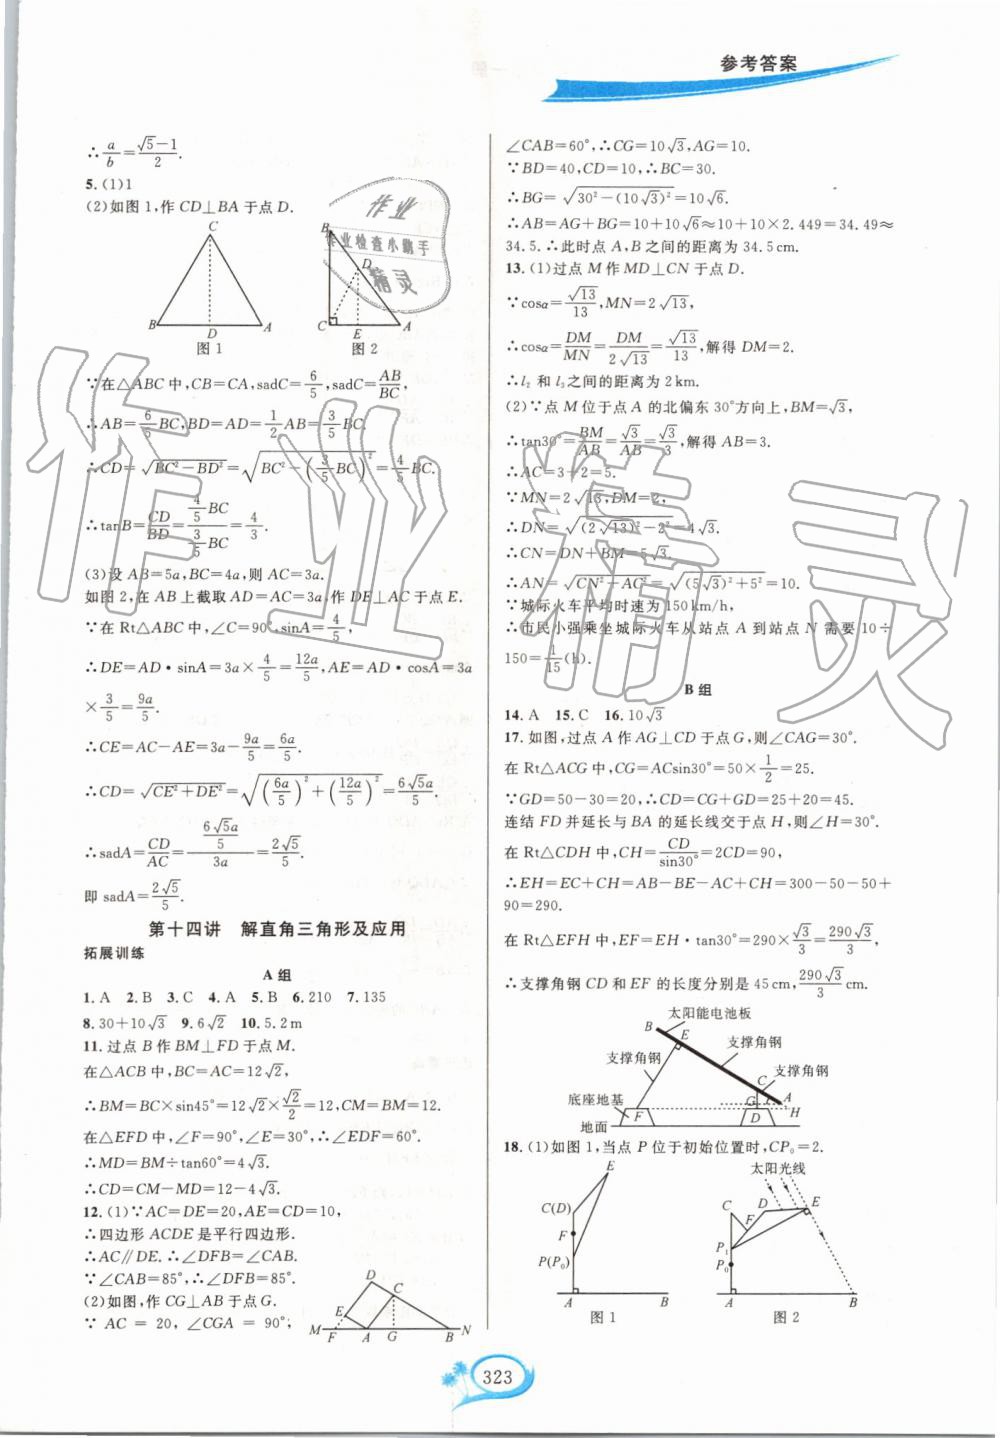 参考答案
∴a/b=(√5-1)/2.
5.(1)1
(2)如图1,作CD⊥BA于点D.
C
B
D
A
图1
B
D
C
E
A
图2
∵在△ABC中,CB=CA,sadC=6/5,sadC=AB/BC,
∴AB=6/5BC,BD=AD=1/2AB=3/5BC.
∴CD=√(BC²-BD²)=√(BC²-(3/5BC)²)=4/5BC.
∴tanB=CD/BD=(4/5BC)/(3/5BC)=4/3
(3)设AB=5a,BC=4a,则AC=3a.
如图2,在AB上截取AD=AC=3a,作DE⊥AC于点E.
∵在Rt△ABC中,∠C=90°,sinA=4/5,
∴DE=AD·sinA=3a×4/5=12a/5,AE=AD·cosA=3a
×3/5=9a/5.
∴CE=AC-AE=3a-9a/5=6a/5.
∴CD=√(CE²+DE²)=√((6a/5)²+(12a/5)²)=6√5a/5.
∴sadA=CD/AC=(6√5a/5)/3a=2√5/5.
即sadA=2√5/5.
第十四讲 解直角三角形及应用
拓展训练
A组
1.A 2.B 3.C 4.A 5.B 6.210 7.135
8.30+10√3 9.6√2 10.5.2m
11.过点B作BM⊥FD于点M.
在△ACB中,BC=AC=12√2,
∴BM=BC×sin45°=12√2×√2/2=12,CM=BM=12.
在△EFD中,∠F=90°,∠E=30°,∴∠EDF=60°.
∴MD=BM÷tan60°=4√3.
∴CD=CM-MD=12-4√3.
12.(1)∵AC=DE=20,AE=CD=10,
∴四边形ACDE是平行四边形.
∴AC∥DE.∴∠DFB=∠CAB.
∵∠CAB=85°,∴∠DFB=85°.
(2)如图,作CG⊥AB于点G.
∵ AC = 20, ∠CGA = 90°,
D
C
E
M F A G B N
∠CAB=60°,∴CG=10√3,AG=10.
∵BD=40,CD=10,∴BC=30.
∴BG=√(30²-(10√3)²)=10√6.
∴AB=AG+BG=10+10√6≈10+10×2.449=34.49≈
34.5.∴此时点A,B之间的距离为34.5cm.
13.(1)过点M作MD⊥CN于点D.
∵cosα=√13/13,MN=2√13,
∴cosα=DM/MN=DM/2√13=√13/13,解得DM=2.
∴l₂和l₃之间的距离为2km.
(2)∵点M位于点A的北偏东30°方向上,BM=√3,
∴tan30°=BM/AB=√3/AB=√3/3,解得AB=3.
∴AC=3+2=5.
∵MN=2√13,DM=2,
∴DN=√((2√13)²-2²)=4√3.
∴CN=DN+BM=5√3.
∴AN=√(CN²-AC²)=√((5√3)²+5²)=10.
∵城际火车平均时速为150km/h,
∴市民小强乘坐城际火车从站点A到站点N需要10÷
150=1/15(h).
B组
14.A 15.C 16.10√3
17.如图,过点A作AG⊥CD于点G,则∠CAG=30°.
在Rt△ACG中,CG=ACsin30°=50×1/2=25.
∵GD=50-30=20,∴CD=CG+GD=25+20=45.
连结FD并延长与BA的延长线交于点H,则∠H=30°.
在Rt△CDH中,CH=CD/sin30°=2CD=90,
∴EH=EC+CH=AB-BE-AC+CH=300-50-50+
90=290.
在Rt△EFH中,EF=EH·tan30°=290×√3/3=290√3/3,
∴支撑角钢CD和EF的长度分别是45cm,290√3/3cm.
太阳能电池板
B
E
支撑角钢
支撑角钢
C
支撑角钢
底座地基
G
A
F
D
H
地面
18.(1)如图1,当点P位于初始位置时,CP₀=2.
E
C(D)
F
P(P₀)
A
B
图1
太阳光线
C
D
E
F
P₁
P₀
A
B
图2
323
作业
作业检查小助手
精灵
作业精灵